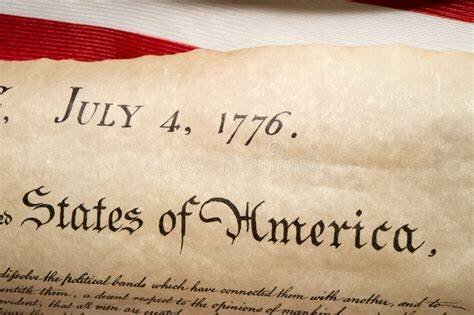 JULY 4, 1776.
ed States of America,
dissolve the political bands which have connected them with another, and to
entitle them, a decent respect to the opinions of mankind
vident, that all men are created